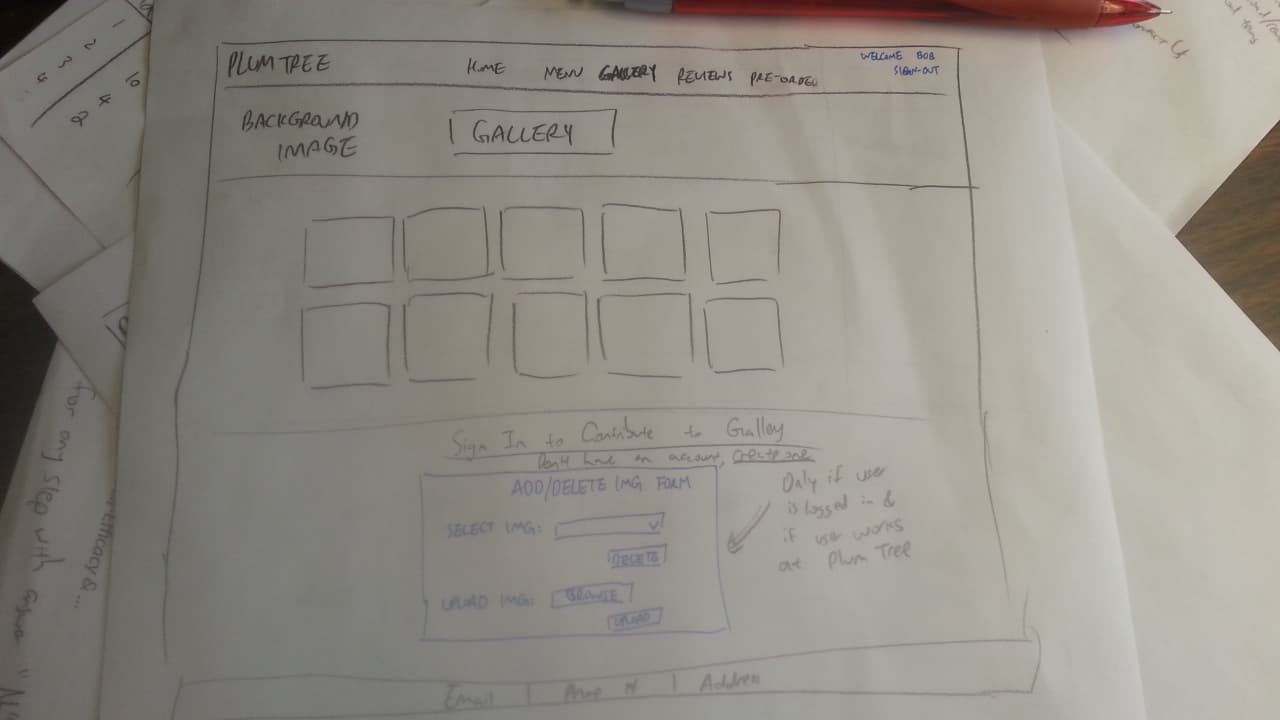 PLUM TREE
HOME MENU GALLERY REVIEWS PRE-ORDER
WELCOME BOB
SIGN-OUT
BACKGROUND
IMAGE
GALLERY
Sign In to Contribute to Galley
Don't have an account, create one
ADD/DELETE IMG FORM
SELECT IMG:
DELETE
UPLOAD IMG: BROWSE
UPLOAD
Only if user
is logged in &
if user works
at Plum Tree
Email | Phone # | Address
for any step with
1
2
3
4
10
4
2